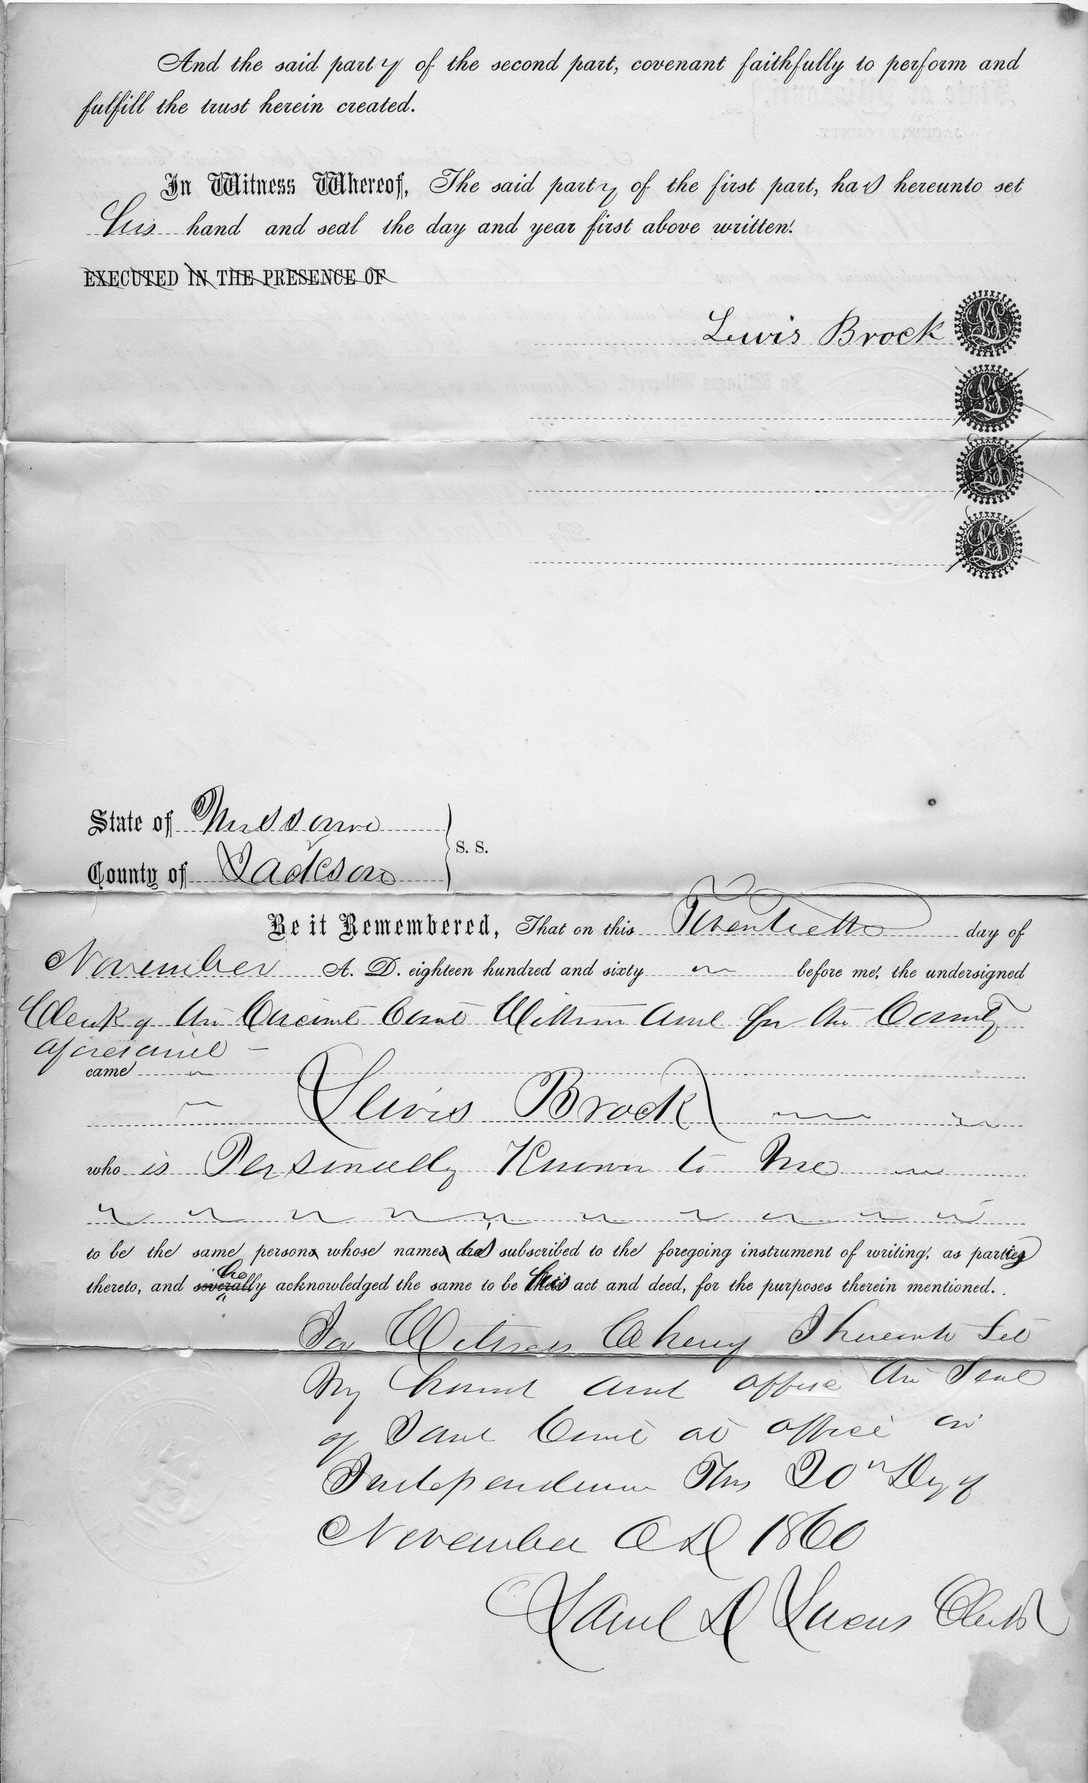 And the said party of the second part, covenant faithfully to perform and
fulfill the trust herein created.
In Witness Whereof, The said party of the first part, has hereunto set
his hand and seal the day and year first above written.
EXECUTED IN THE PRESENCE OF
Lewis Brock LS
LS
LS
LS
State of Missouri
S. S.
County of Jackson
Be it Remembered, That on this Twentieth day of
November A. D. eighteen hundred and sixty before me, the undersigned
Clerk of the Circuit Court Within and for the County
aforesaid
came
Lewis Brock
who is Personally Known to Me
to be the same person whose name has subscribed to the foregoing instrument of writing, as party
he
thereto, and severally acknowledged the same to be his act and deed, for the purposes therein mentioned.
In Witness Whereof I hereunto Set
My hand and affix the Seal
of Said Court at office in
Independence This 20th Day of
November AD 1860
Saml D Lucas Clerk